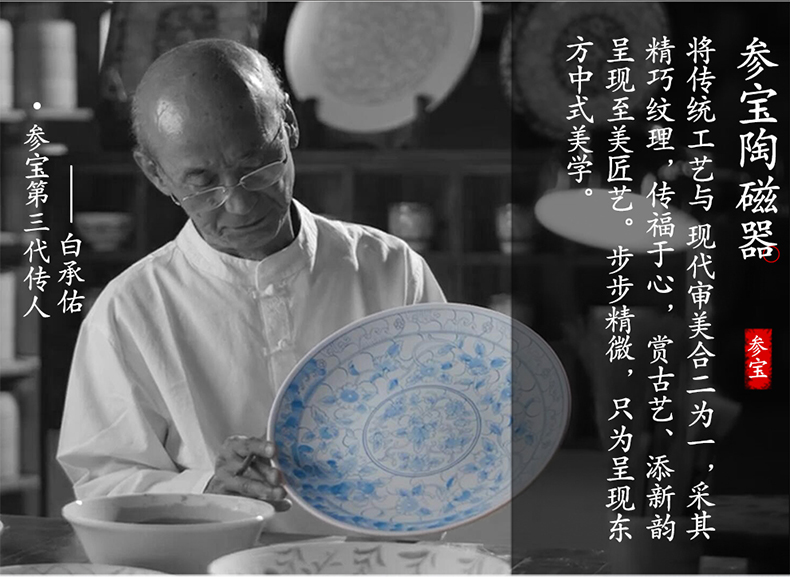 参宝陶磁器
将传统工艺与现代审美合二为一，采其
精巧纹理，传福于心，赏古艺、添新韵
呈现至美匠艺。步步精微，只为呈现东
方中式美学。
参宝
——白承佑
·参宝第三代传人